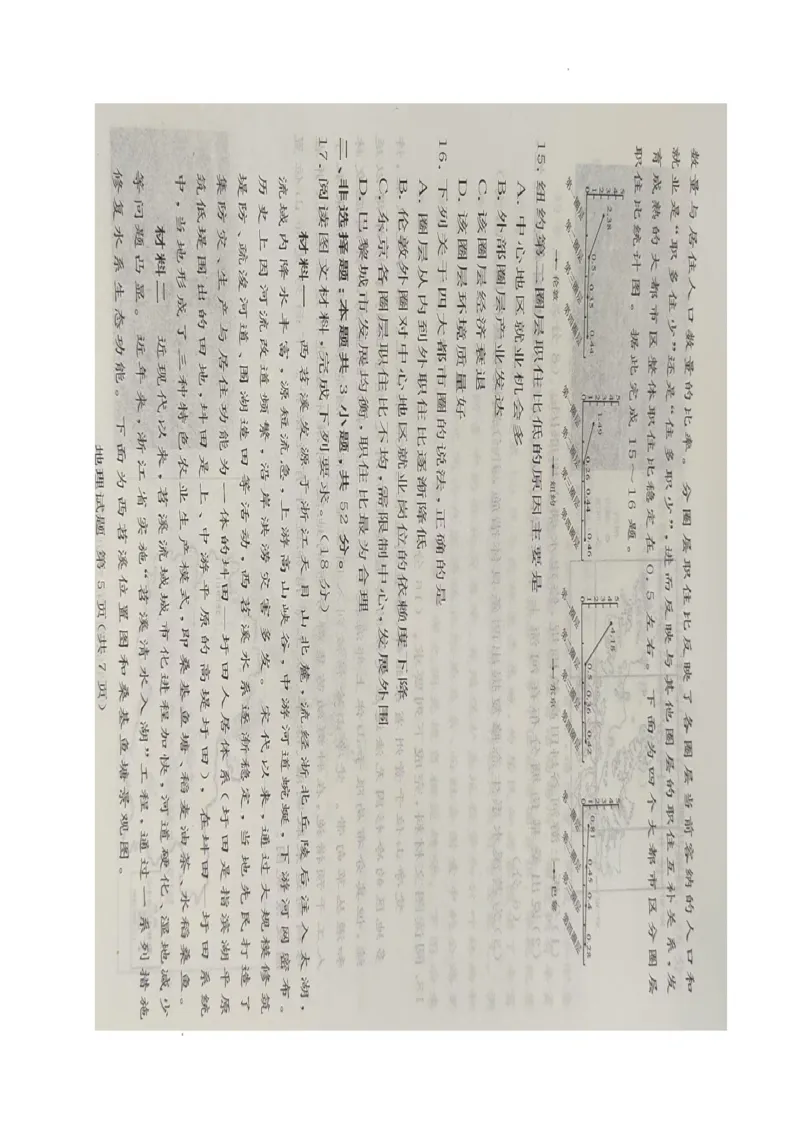 数量与居住人口数量的比率。分圈层职住比反映了各圈层当前容纳的人口和
就业是“职多住少”还是“住多职少”,进而反映与其他圈层的职住互补关系,发
育成熟的大都市区整体职住比稳定在0.5左右。下面为四个大都市区分圈层
职住比统计图。据此完成15~16题。
5
4
3
2
1
0
2.38
0.5
0.35
0.44
第一圈层
第二圈层
第三圈层
第四圈层
伦敦
5
4
3
2
1
0
1.49
0.26
0.44
0.46
第一圈层
第二圈层
第三圈层
第四圈层
纽约
5
4
3
2
1
0
4.16
0.5
0.36
0.47
第一圈层
第二圈层
第三圈层
第四圈层
东京
5
4
3
2
1
0
0.81
0.45
0.4
0.28
第一圈层
第二圈层
第三圈层
第四圈层
巴黎
15.纽约第二圈层职住比低的原因主要是
A.中心地区就业机会多
B.外部圈层产业发达
C.该圈层经济衰退
D.该圈层环境质量好
16.下列关于四大都市圈的说法,正确的是
A.圈层从内到外职住比逐渐降低
B.伦敦外圈对中心地区就业岗位的依赖度下降
C.东京各圈层职住比不均,需限制中心,发展外围
D.巴黎城市发展均衡,职住比最为合理
二、非选择题:本题共3小题,共52分。
17.阅读图文材料,完成下列要求。(18分)
材料一 西苕溪发源于浙江天目山北麓,流经浙北丘陵后注入太湖,
流域内降水丰富,源短流急,上游高山峡谷,中游河道蜿蜒,下游河网密布。
历史上因河流改道频繁,沿岸洪涝灾害多发。宋代以来,通过大规模修筑
堤防、疏浚河道、围湖造田等活动,西苕溪水系逐渐稳定,当地先民打造了
集防灾、生产与居住功能为一体的圩田—圩田人居体系(圩田是指滨湖平原
筑低堤围出的田地,圩田是上、中游平原的高堤圩田),在圩田—圩田系统
中,当地形成了三种特色农业生产模式,即桑基鱼塘、稻麦油茶、水稻桑鱼。
材料二 近现代以来,苕溪流域城市化进程加快,河道硬化、湿地减少
等问题凸显。近年来,浙江省实施“苕溪清水入湖”工程,通过一系列措施
修复水系生态功能。下面为西苕溪位置图和桑基鱼塘景观图。
地理试题 第5页(共7页)